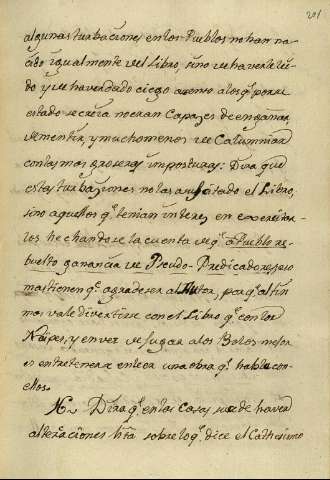 201
algunas turbaciones en los Pueblos no han na
cido igualmente del Libro, sino de haverle lei
do y de haver dado ciego asenso a los q.e por su
estado se creia no eran capazes de engañar,
de mentir, y mucho menos de Calumniar
con las mas groseras imposturas: Dira que
estas turbaziones no las a suscitado el Libro,
sino aquellos q.e tenian interes en
los hechandose la cuenta de q.e a Pueblo re-
buelto ganancia de Pseudo-Predicadores; pero
mas tienen q.e agradecer al Autor, porq.e al fin
mas vale divertirse con el Libro q.e con los
Naipes, y en vez de jugar a los Bolos mejor
es entretenerse en leer una obra q.e habla con
ellos.
Dira q.e en las Casas de haver
alteraciones sobre lo q.e dice el Cathecismo